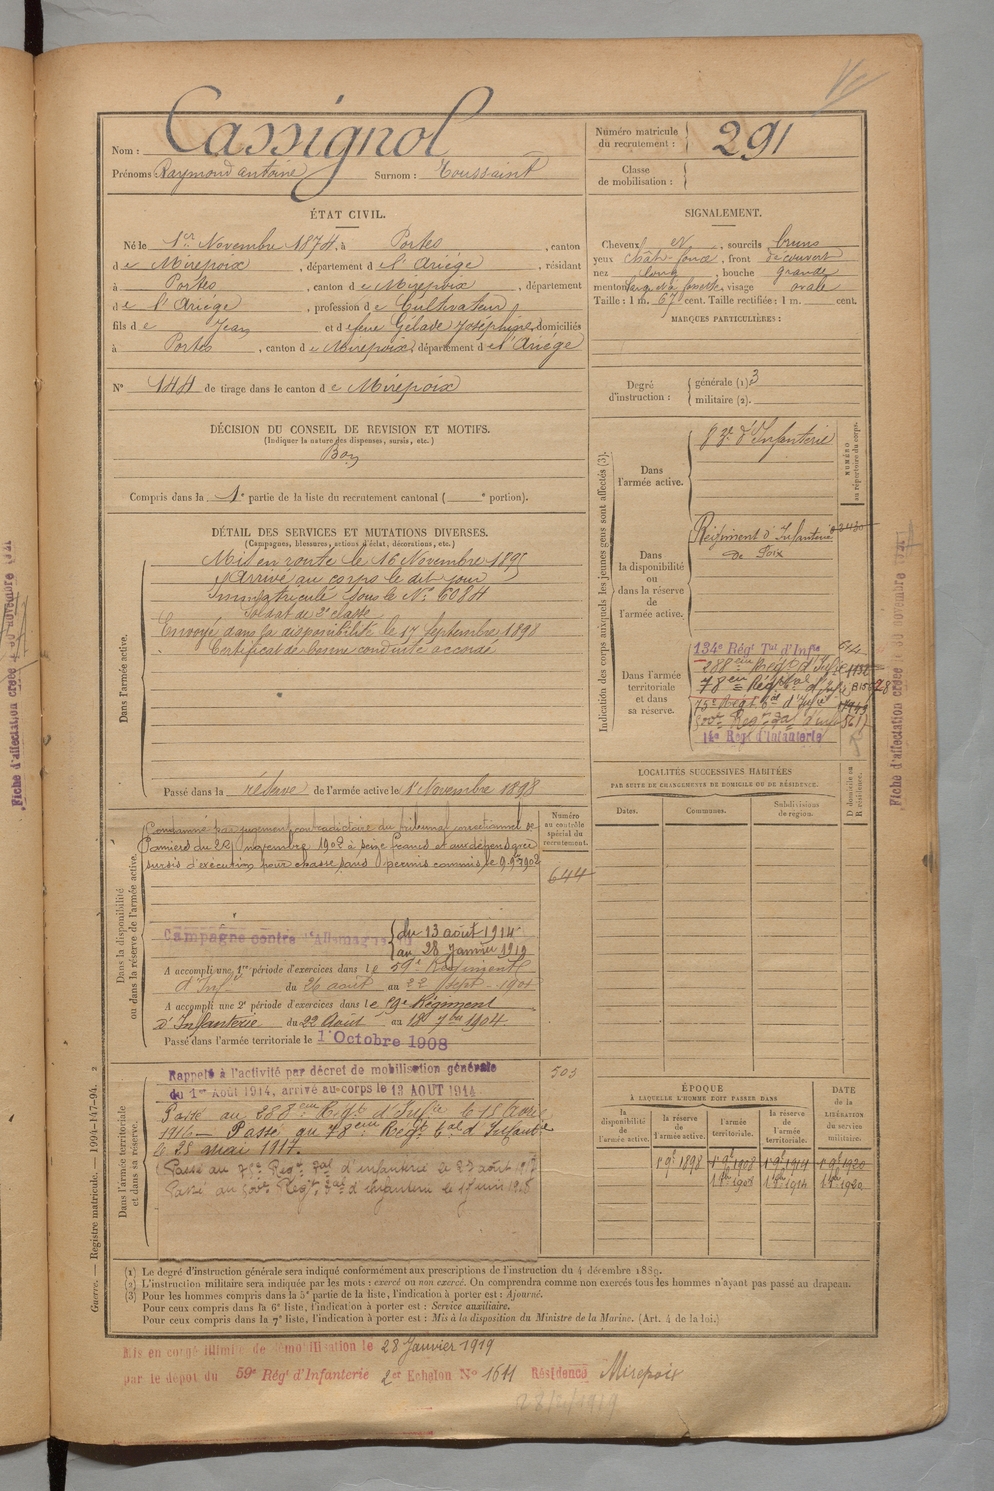 Nom : Cassignol
Prénoms Raymond Antoine Surnom : Toussaint
Numéro matricule du recrutement : 291
Classe de mobilisation :
ÉTAT CIVIL.
Né le 1er Novembre 1874, à Portes, canton
de Mirepoix, département de l'Ariége, résidant
à Portes, canton de Mirepoix, département
de l'Ariége, profession de Cultivateur
fils de Jean et de feue Gélade Joséphine, domiciliés
à Portes, canton de Mirepoix, département de l'Ariége
N° 144 de tirage dans le canton de Mirepoix
SIGNALEMENT.
Cheveux et, sourcils bruns
yeux chat. foncé, front découvert
nez long, bouche grande
menton large et à fossette, visage ovale
Taille : 1 m. 67 cent. Taille rectifiée : 1 m. cent.
MARQUES PARTICULIÈRES :
Degré d'instruction : générale (1). 3
militaire (2).
DÉCISION DU CONSEIL DE REVISION ET MOTIFS.
(Indiquer la nature des dispenses, sursis, etc.)
Bon
Compris dans la 1e partie de la liste du recrutement cantonal ( e portion).
DÉTAIL DES SERVICES ET MUTATIONS DIVERSES.
(Campagnes, blessures, actions d'éclat, décorations, etc.)
Dans l'armée active.
Mis en route le 16 Novembre 1895
Arrivé au corps le dit jour
Immatriculé sous le N° 6084
Soldat de 2e classe
Envoyé dans la disponibilité le 17 Septembre 1898
Certificat de bonne conduite accordé
Passé dans la réserve de l'armée active le 1er Novembre 1898
Dans la disponibilité ou dans la réserve de l'armée active.
Condamné par jugement contradictoire du tribunal correctionnel de
Pamiers du novembre 1902 à seize francs et aux dépens avec
sursis d'exécution pour chasse sans permis commis le 9.9bre 1902
Numéro au contrôle spécial du recrutement.
644
Campagne contre l'Allemagne
du 13 août 1914
au 28 Janvier 1919
A accompli une 1re période d'exercices dans le 59e Régiment
d'Inf. du 26 août au 22 Sept. 1901
A accompli une 2e période d'exercices dans le 59e Régiment
d'Infanterie du 22 Août au 18 7bre 1904.
Passé dans l'armée territoriale le 1 Octobre 1908
Dans l'armée territoriale et dans sa réserve.
503
Rappelé à l'activité par décret de mobilisation générale
du 1er Août 1914, arrivé au corps le 13 AOUT 1914
Passé au 288eme Régt d'Infie le 15 Avril
1916 — Passé au 78eme Régt tal d'Infanterie
le 25 mai 1917.
Passé au 75e Regt Tal d'infanterie le 23 août 1917
Passé au 500e Regt Tal d'infanterie le 17 juin 1918
Indication des corps auxquels les jeunes gens sont affectés (3).
Dans l'armée active.
d'Infanterie
NUMÉRO au répertoire du corps.
Dans la disponibilité ou dans la réserve de l'armée active.
Régiment d'Infanterie
de Foix
Dans l'armée territoriale et dans sa réserve.
134e Régt Tal d'Infie
288eme Régt d'Infie
78eme Régt tal d'Infie
75e Régt Tal d'Infie
500e Regt Tal d'inf 561
14e Rég. d'Infanterie
LOCALITÉS SUCCESSIVES HABITÉES
PAR SUITE DE CHANGEMENTS DE DOMICILE OU DE RÉSIDENCE.
Dates. Communes. Subdivisions de région. D domicile ou R résidence.
ÉPOQUE
À LAQUELLE L'HOMME DOIT PASSER DANS
DATE de la LIBÉRATION du service militaire.
la disponibilité de l'armée active. la réserve de l'armée active. l'armée territoriale. la réserve de l'armée territoriale.
1 9bre 1898 1 9bre 1908 1 9bre 1914 1 9bre 1920
1 8bre 1908 1 8bre 1914 1 8bre 1920
(1) Le degré d'instruction générale sera indiqué conformément aux prescriptions de l'instruction du 4 décembre 1889.
(2) L'instruction militaire sera indiquée par les mots : exercé ou non exercé. On comprendra comme non exercés tous les hommes n'ayant pas passé au drapeau.
(3) Pour les hommes compris dans la 5e partie de la liste, l'indication à porter est : Ajourné.
Pour ceux compris dans la 6e liste, l'indication à porter est : Service auxiliaire.
Pour ceux compris dans la 7e liste, l'indication à porter est : Mis à la disposition du Ministre de la Marine. (Art. 4 de la loi.)
Guerre. — Registre matricule. — 1994-147-94. 2
Mis en congé illimité de démobilisation le 28 Janvier 1919
par le dépôt du 59e Régt d'Infanterie 2er Echelon N° 1611 Résidence Mirepoix
Fiche d'affectation créée le 30 novembre
Fiche d'affectation créée le 30 novembre